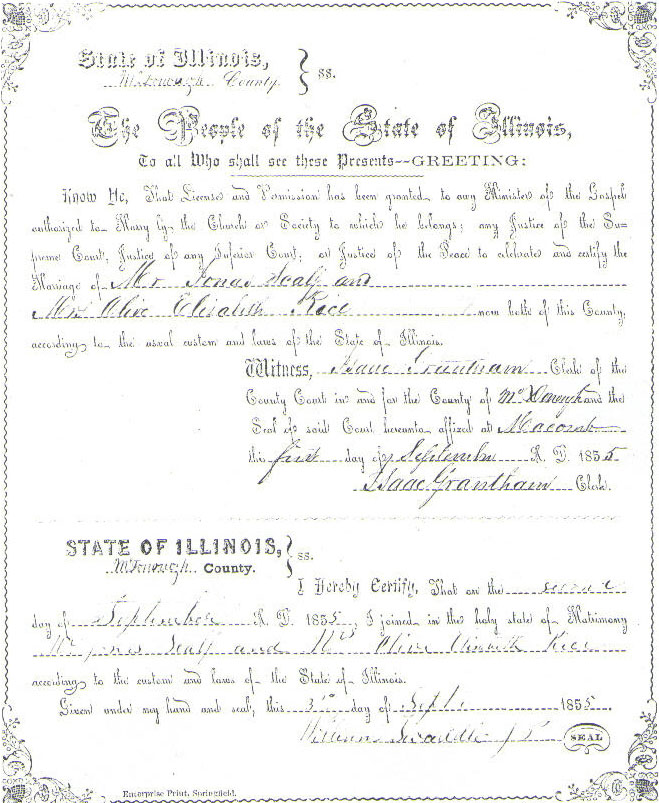 State of Illinois,
McDonough County. } ss.
The People of the State of Illinois,
To all Who shall see these Presents--GREETING:
Know Ye, That License and Permission has been granted to any Minister of the Gospel
authorized to Marry by the Church or Society to which he belongs; any Justice of the Su-
preme Court, Justice of any Inferior Court, or Justice of the Peace to celebrate and certify the
Marriage of Mr Jonas Scalf and
Mrs Olive Elizabeth Rice now both of this County,
according to the usual custom and laws of the State of Illinois.
Witness, Isaac Grantham Clerk of the
County Court in and for the County of McDonough and the
Seal of said Court hereunto affixed at Macomb
this first day of September A. D. 1855
Isaac Grantham Clerk.
STATE OF ILLINOIS,
McDonough County. } ss.
I Hereby Certify, That on the second
day of September A. D. 1855, I joined in the holy state of Matrimony
Mr Jonas Scalf and Mrs Olive Elizabeth Rice
according to the custom and laws of the State of Illinois.
Given under my hand and seal, this 3 day of Sept. 1855
William Swaddle J P. SEAL
Enterprise Print, Springfield.